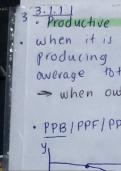 3 3.1.1
• Productive
when it is
producing
average tot
→ when ow
• PPB / PPF / PP
y